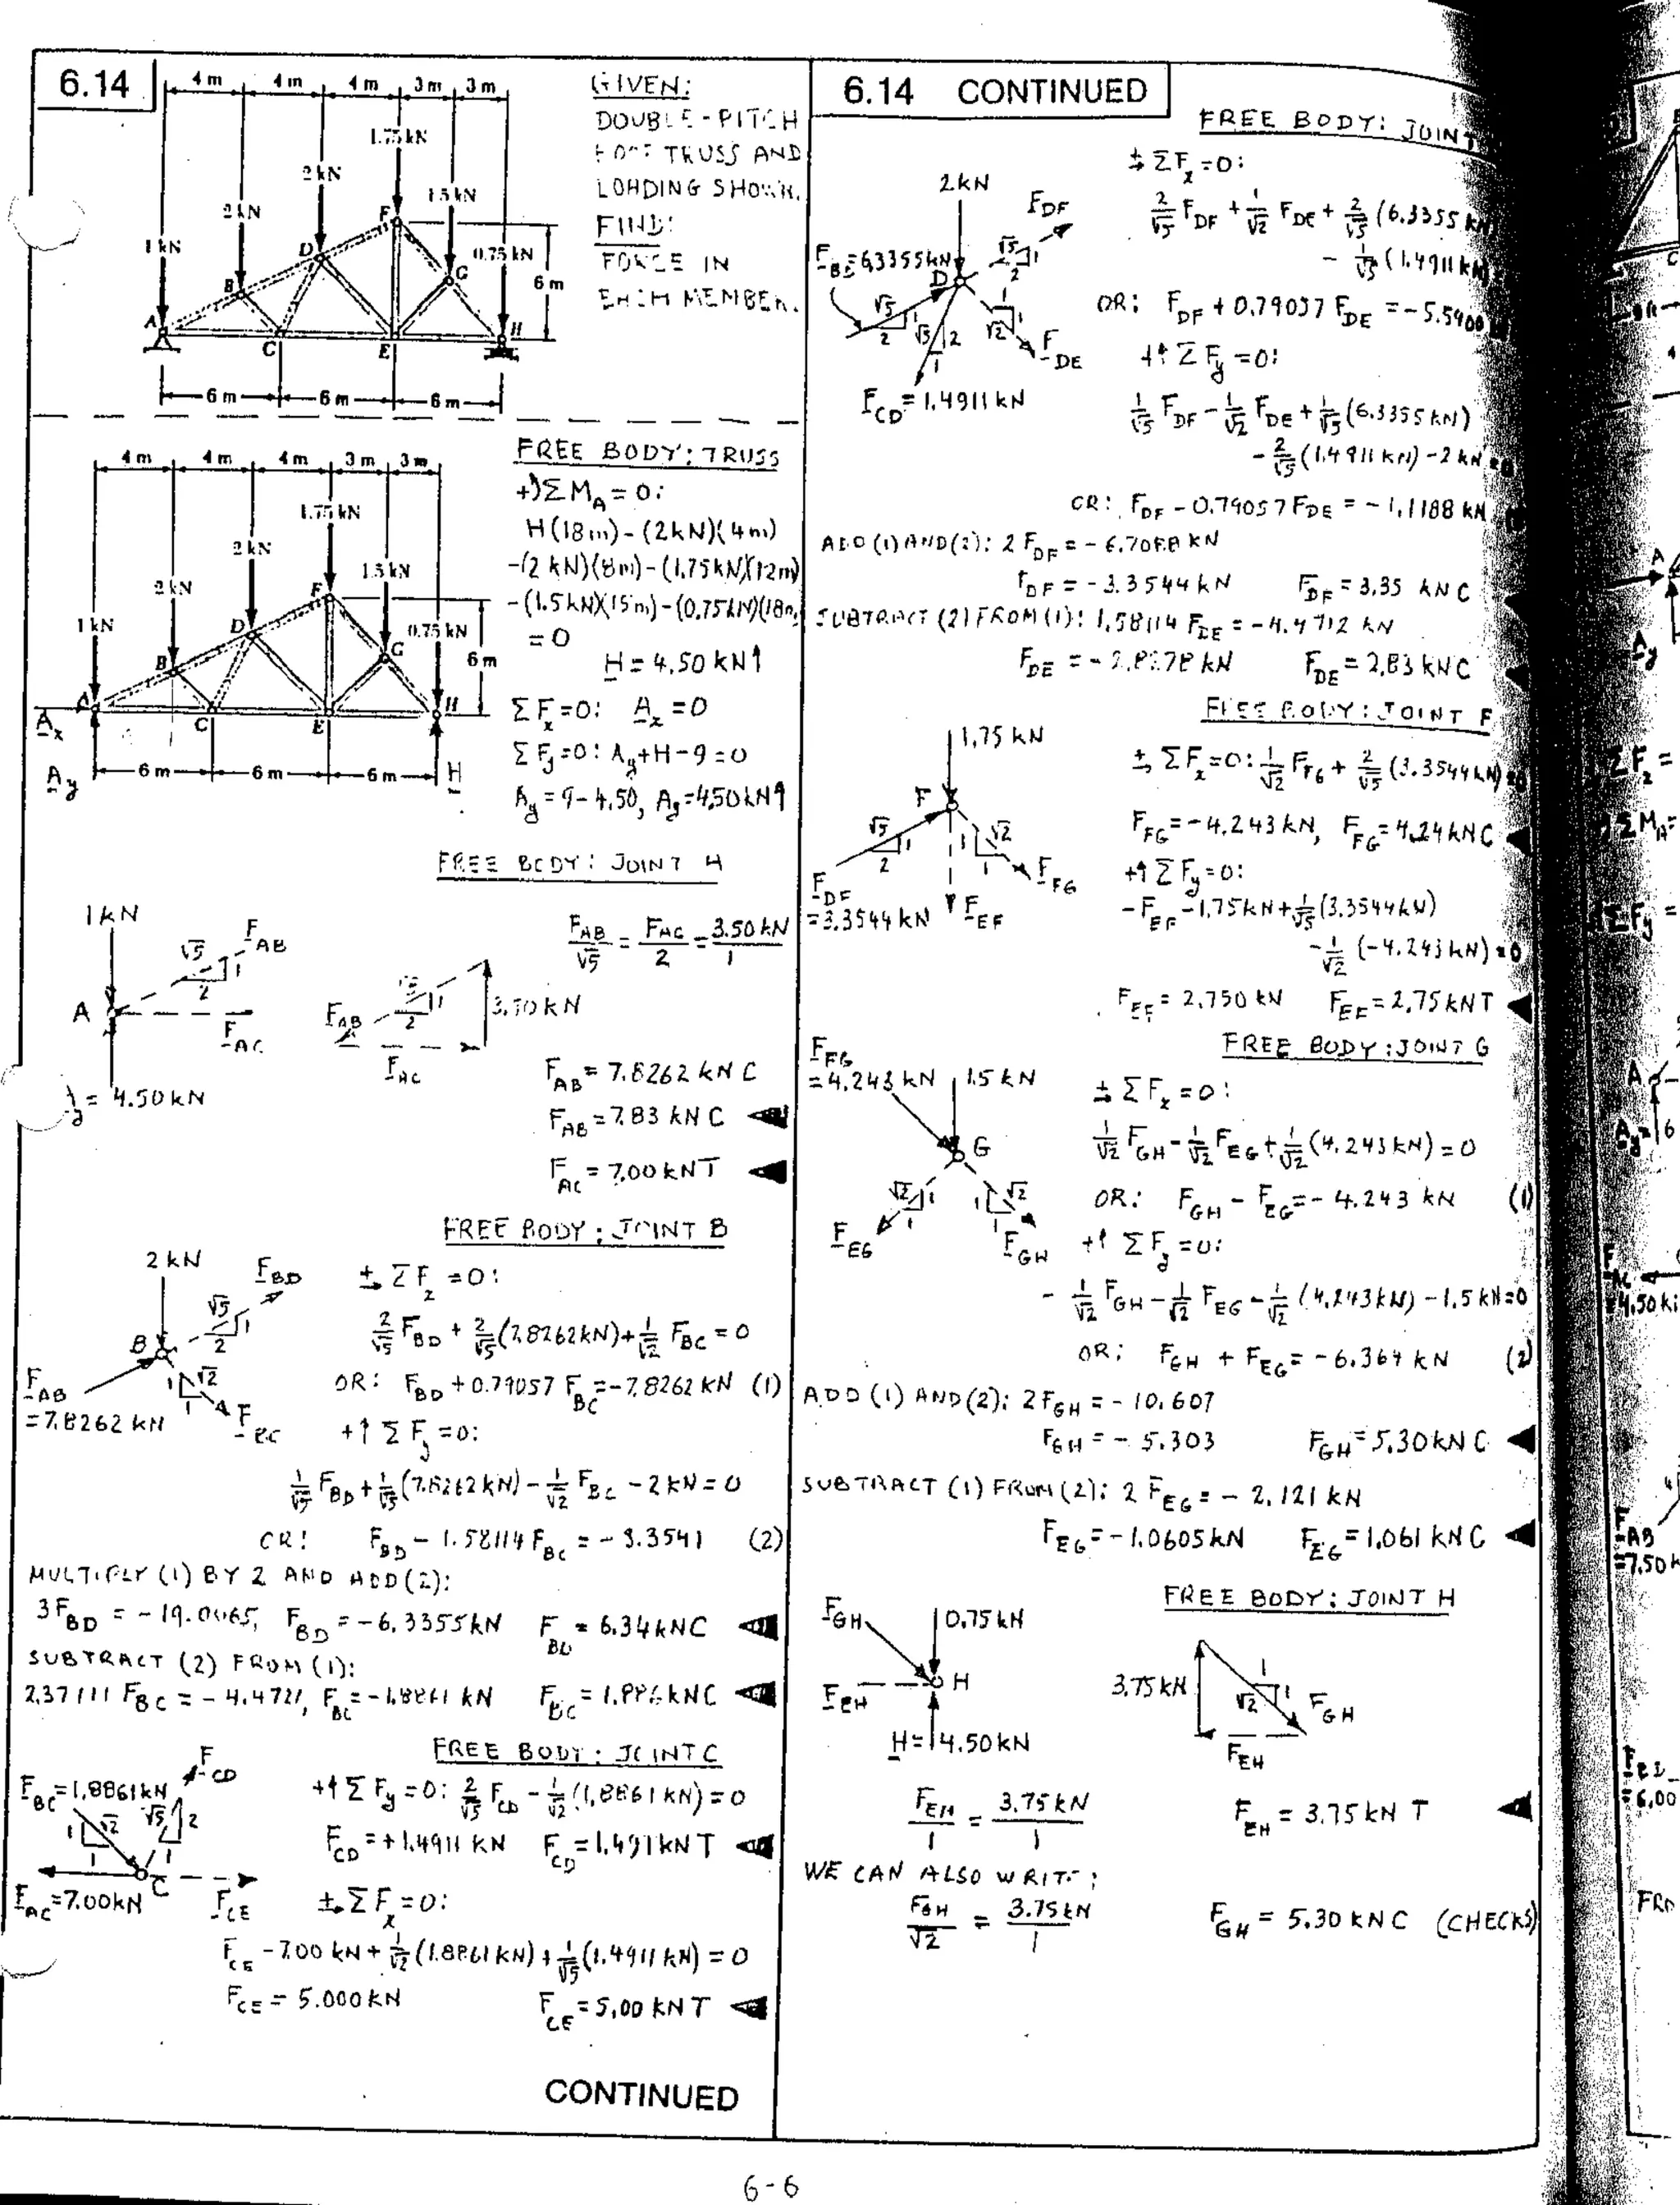 6.14
4 m 4 m 4 m 3 m 3 m
1.75 kN
2 kN
1.5 kN
2 kN
F
1 kN
D
0.75 kN
G
6 m
B
A
H
C E
6 m 6 m 6 m
GIVEN:
DOUBLE-PITCH
TRUSS AND
LOADING SHOWN.
FIND:
FORCE IN
EACH MEMBER.
4 m 4 m 4 m 3 m 3 m
1.75 kN
2 kN
1.5 kN
2 kN
F
1 kN
D
0.75 kN
G
6 m
B
A
H
C E
Ax
6 m 6 m 6 m
Ay
H
FREE BODY: TRUSS
+) ΣMA = 0:
H(18m) - (2kN)(4m)
-(2 kN)(8m) - (1.75kN)(12m)
-(1.5kN)(15m) - (0.75kN)(18m)
= 0
H = 4.50 kN↑
ΣFx=0: Ax=0
ΣFy=0: Ay+H-9=0
Ay=9-4.50, Ay=4.50kN↑
FREE BODY: JOINT H
1kN
FAB
√5 1
2
A
FAC
= 4.50kN
FAB
2
3.50kN
FAC
FAB/√5 = FAC/2 = 3.50kN/1
FAB = 7.8262 kN C
FAB = 7.83 kN C
FAC = 7.00 kN T
FREE BODY: JOINT B
2 kN
FBD
√5 1
2
B
1 √2
1
FAB
=7.8262 kN
FBC
ΣFx = 0:
2/√5 FBD + 2/√5 (7.8262kN) + 1/√2 FBC = 0
OR: FBD + 0.79057 FBC = -7.8262 kN (1)
+↑ ΣFy = 0:
1/√5 FBD + 1/√5 (7.8262kN) - 1/√2 FBC - 2kN = 0
OR: FBD - 1.58114 FBC = -3.3541 (2)
MULTIPLY (1) BY 2 AND ADD (2):
3FBD = -19.0065, FBD = -6.3355kN FBD = 6.34kNC
SUBTRACT (2) FROM (1):
2.37111 FBC = -4.4721, FBC = -1.8861 kN FBC = 1.886kNC
FREE BODY: JOINT C
FCD
FBC=1.8861kN
√5 2
1 √2
1 1
C
FAC=7.00kN
FCE
+↑ ΣFy=0: 2/√5 FCD - 1/√2 (1.8861kN) = 0
FCD = +1.4911 kN FCD = 1.491kNT
ΣFx = 0:
FCE - 7.00 kN + 1/√2 (1.8861kN) + 1/√5 (1.4911kN) = 0
FCE = 5.000kN FCE = 5.00 kNT
CONTINUED
6.14 CONTINUED
FREE BODY: JOINT
2kN
FDF
√5 1
2
FBD=6.3355kN
D
√5 1
2
√5 2
1
√2 1
1
FDE
FCD=1.4911kN
ΣFx=0:
2/√5 FDF + 1/√2 FDE + 2/√5 (6.3355 kN)
- 1/√5 (1.4911 kN)
OR: FDF + 0.79057 FDE = -5.5900
+↑ ΣFy = 0:
1/√5 FDF - 1/√2 FDE + 1/√5 (6.3355kN)
- 2/√5 (1.4911kN) - 2kN = 0
OR: FDF - 0.79057FDE = -1.1188 kN
ADD (1) AND (2): 2FDF = -6.7088 kN
FDF = -3.3544kN FDF = 3.35 kN C
SUBTRACT (2) FROM (1): 1.58114 FDE = -4.4712 kN
FDE = -2.8278 kN FDE = 2.83 kNC
FREE BODY: JOINT F
1.75 kN
F
√5 1
2
1 √2
1
FFG
FDF
=3.3544kN
FEF
ΣFx=0: 1/√2 FFG + 2/√5 (3.3544kN) = 0
FFG = -4.243kN, FFG = 4.24kNC
+↑ ΣFy=0:
-FEF - 1.75kN + 1/√5 (3.3544kN)
- 1/√2 (-4.243kN) = 0
FEF = 2.750 kN FEF = 2.75kNT
FREE BODY: JOINT G
FFG
=4.243 kN 1.5 kN
G
√2 1
1
1 √2
1
FEG
FGH
ΣFx = 0:
1/√2 FGH - 1/√2 FEG + 1/√2 (4.243kN) = 0
OR: FGH - FEG = -4.243 kN (1)
+↑ ΣFy = 0:
- 1/√2 FGH - 1/√2 FEG - 1/√2 (4.243kN) - 1.5kN = 0
OR: FGH + FEG = -6.364 kN (2)
ADD (1) AND (2): 2FGH = -10.607
FGH = -5.303 FGH = 5.30kN C
SUBTRACT (1) FROM (2): 2 FEG = -2.121 kN
FEG = -1.0605kN FEG = 1.061 kNC
FREE BODY: JOINT H
FGH 0.75kN
H
FEH
H=4.50kN
3.75kN
1
√2 1
FGH
FEH
FEH/1 = 3.75kN/1
FEH = 3.75kN T
WE CAN ALSO WRITE:
FGH/√2 = 3.75kN/1
FGH = 5.30 kNC (CHECKS)
6-6